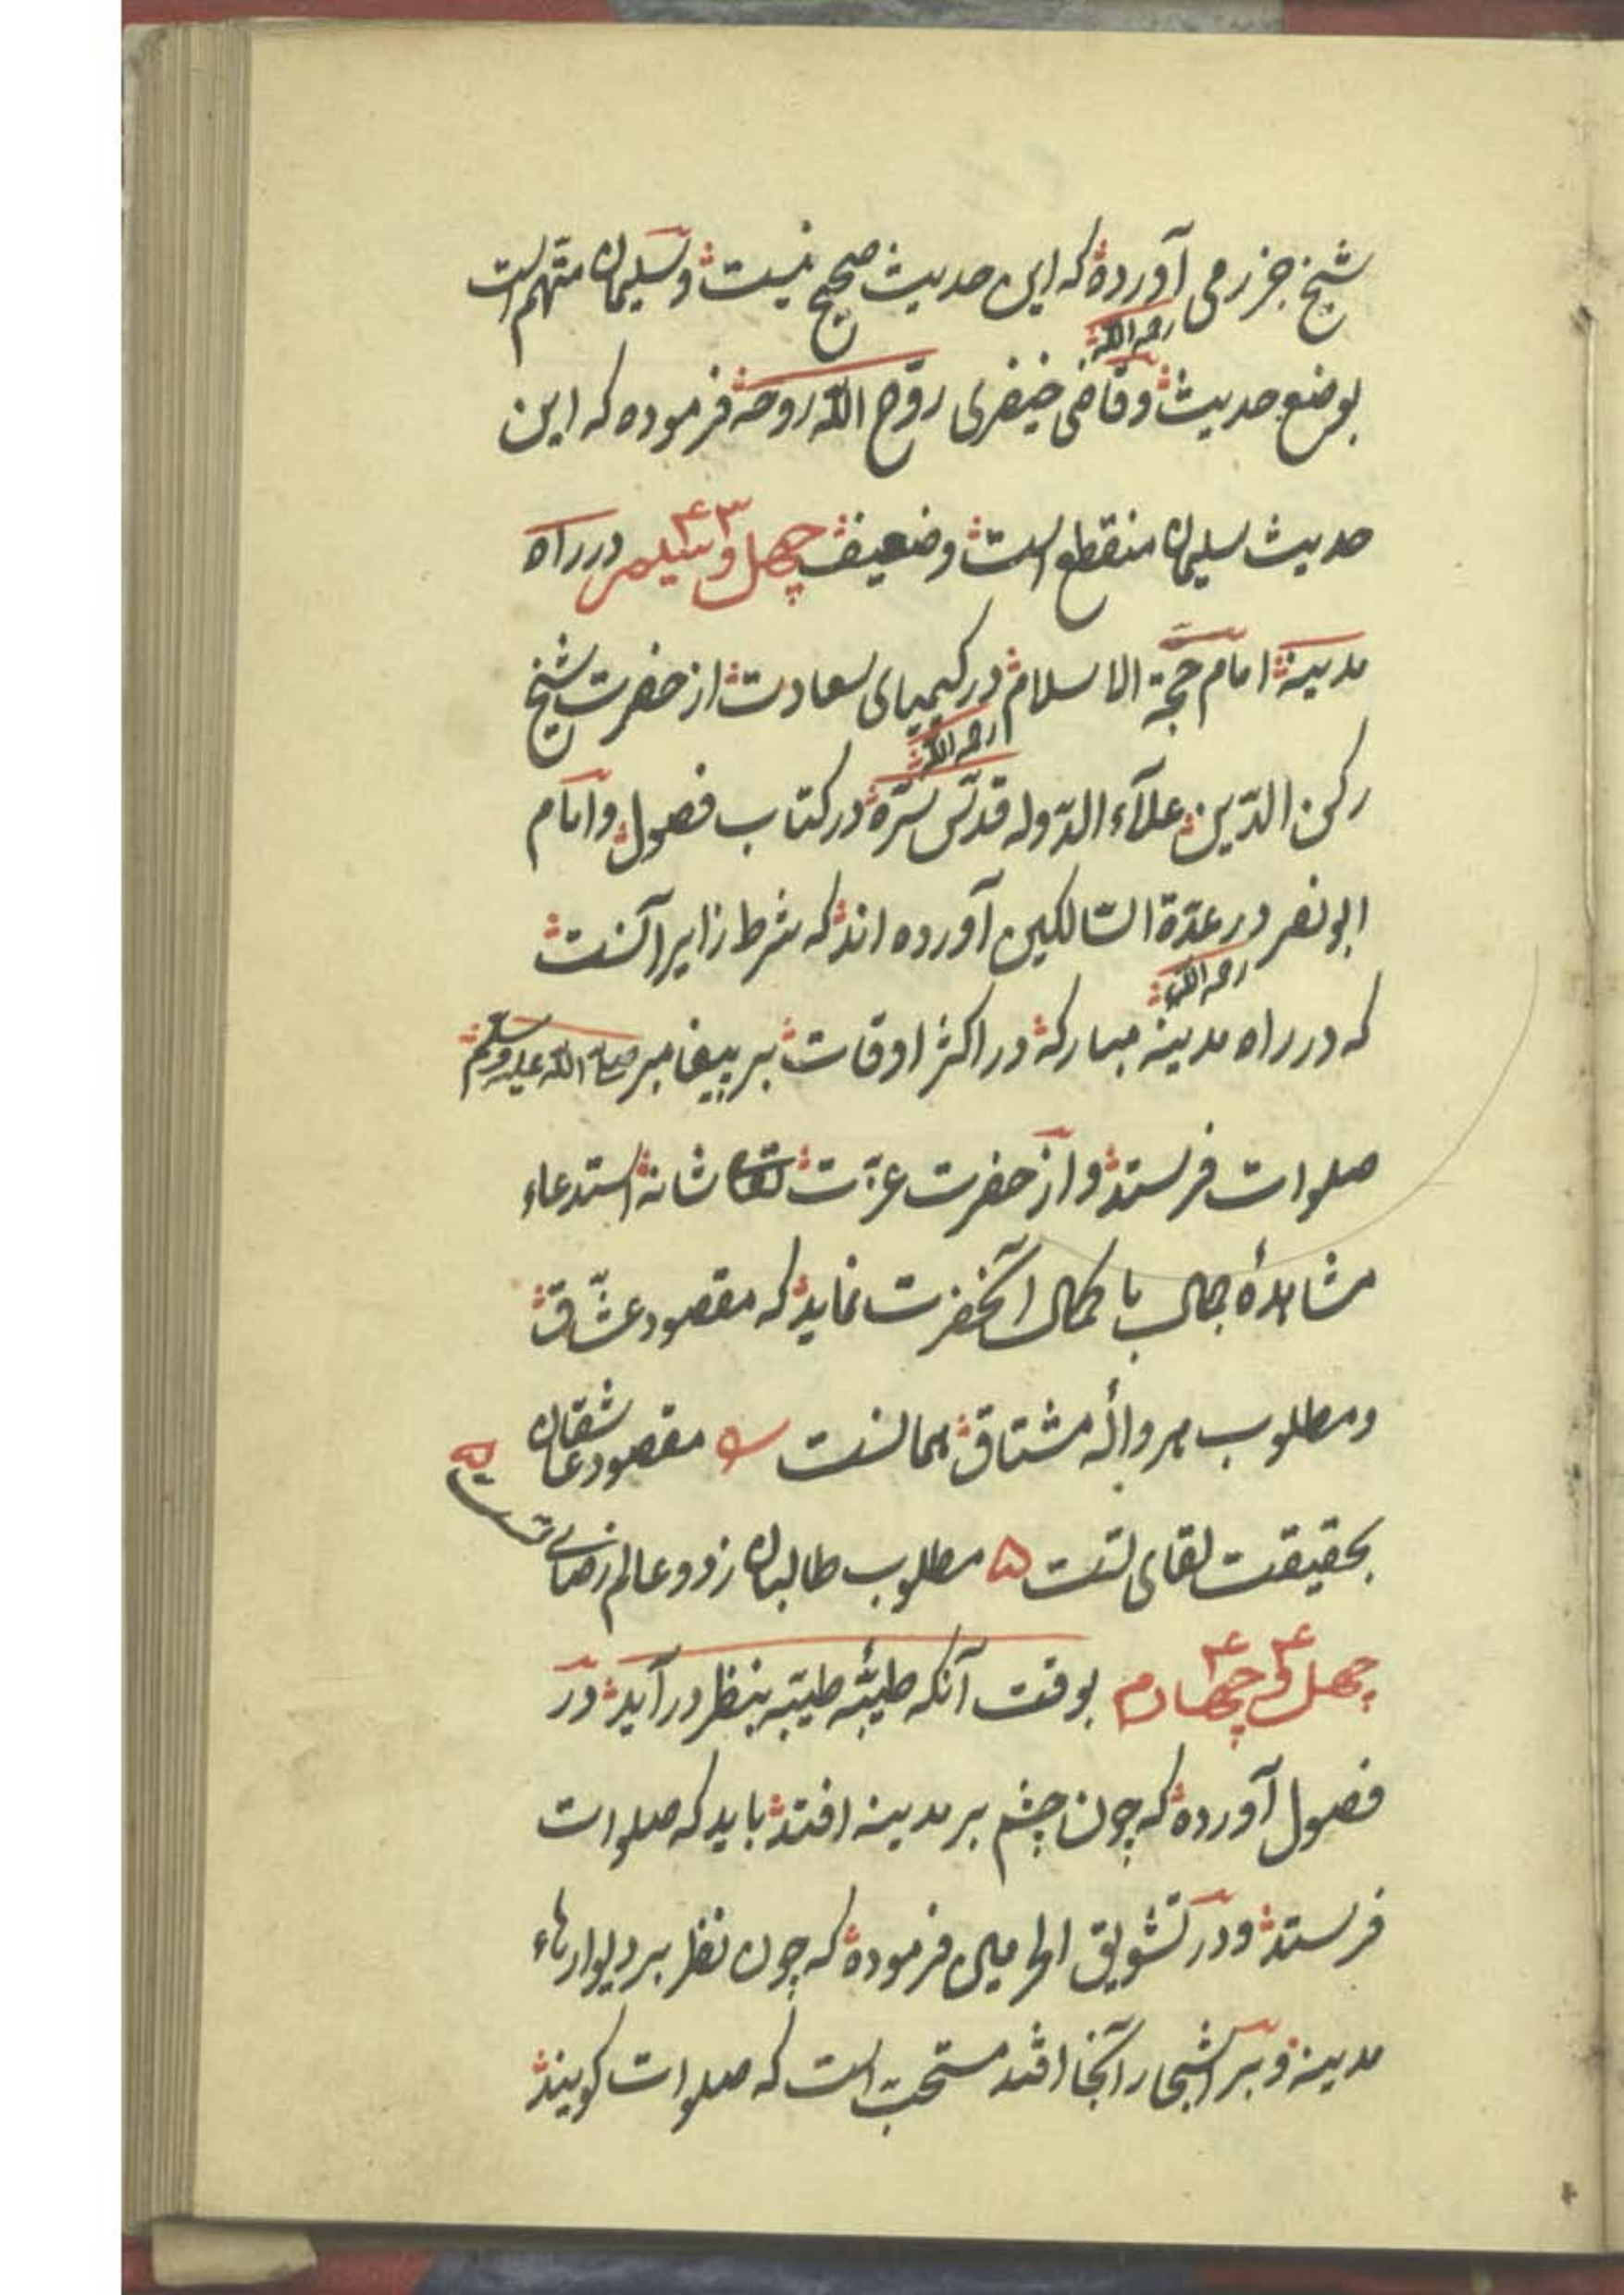 شیخ جزرمی آورده که این حدیث صحیح نیست و سلیمان متهم است
رحمه الله
بوضع حدیث وقاضی خیضری روّح الله روحه فرموده که این
حدیث سلیمان منقطع است وضعیف چهل و سیم در راه
۴۳
مدینه امام حجة الاسلام در کیمیای سعادت از حضرت شیخ
رحمه الله
رکن الدّین علآء الدّوله قدّس سّره در کتاب فصول وامام
ابونصر در عدّة السّالکین آورده اند که شرط زایر آنست
رحمه الله
که در راه مدینه مبارکه در اکثر اوقات بر پیغامبر صلی الله علیه وسلم
صلوات فرستد و از حضرت عزّت تعالی شانه استدعاء
مشاهدۀ جمال با کمال آنحضرت نماید که مقصود عشّاق
ومطلوب هر واله مشتاق همانست مقصود عاشقان
بحقیقت لقای تست ۵ مطلوب طالبان ز دو عالم رضای تست
چهل و چهارم بوقت آنکه طیبّه بنظر در آید در
۴۴
فصول آورده که چون چشم بر مدینه افتد باید که صلوات
فرستد ودر تشویق الحرمین فرموده که چون نظر بر دیوارهاء
مدینه و بر اشجار آنجا افتد مستحبّ است که صلوات کویند